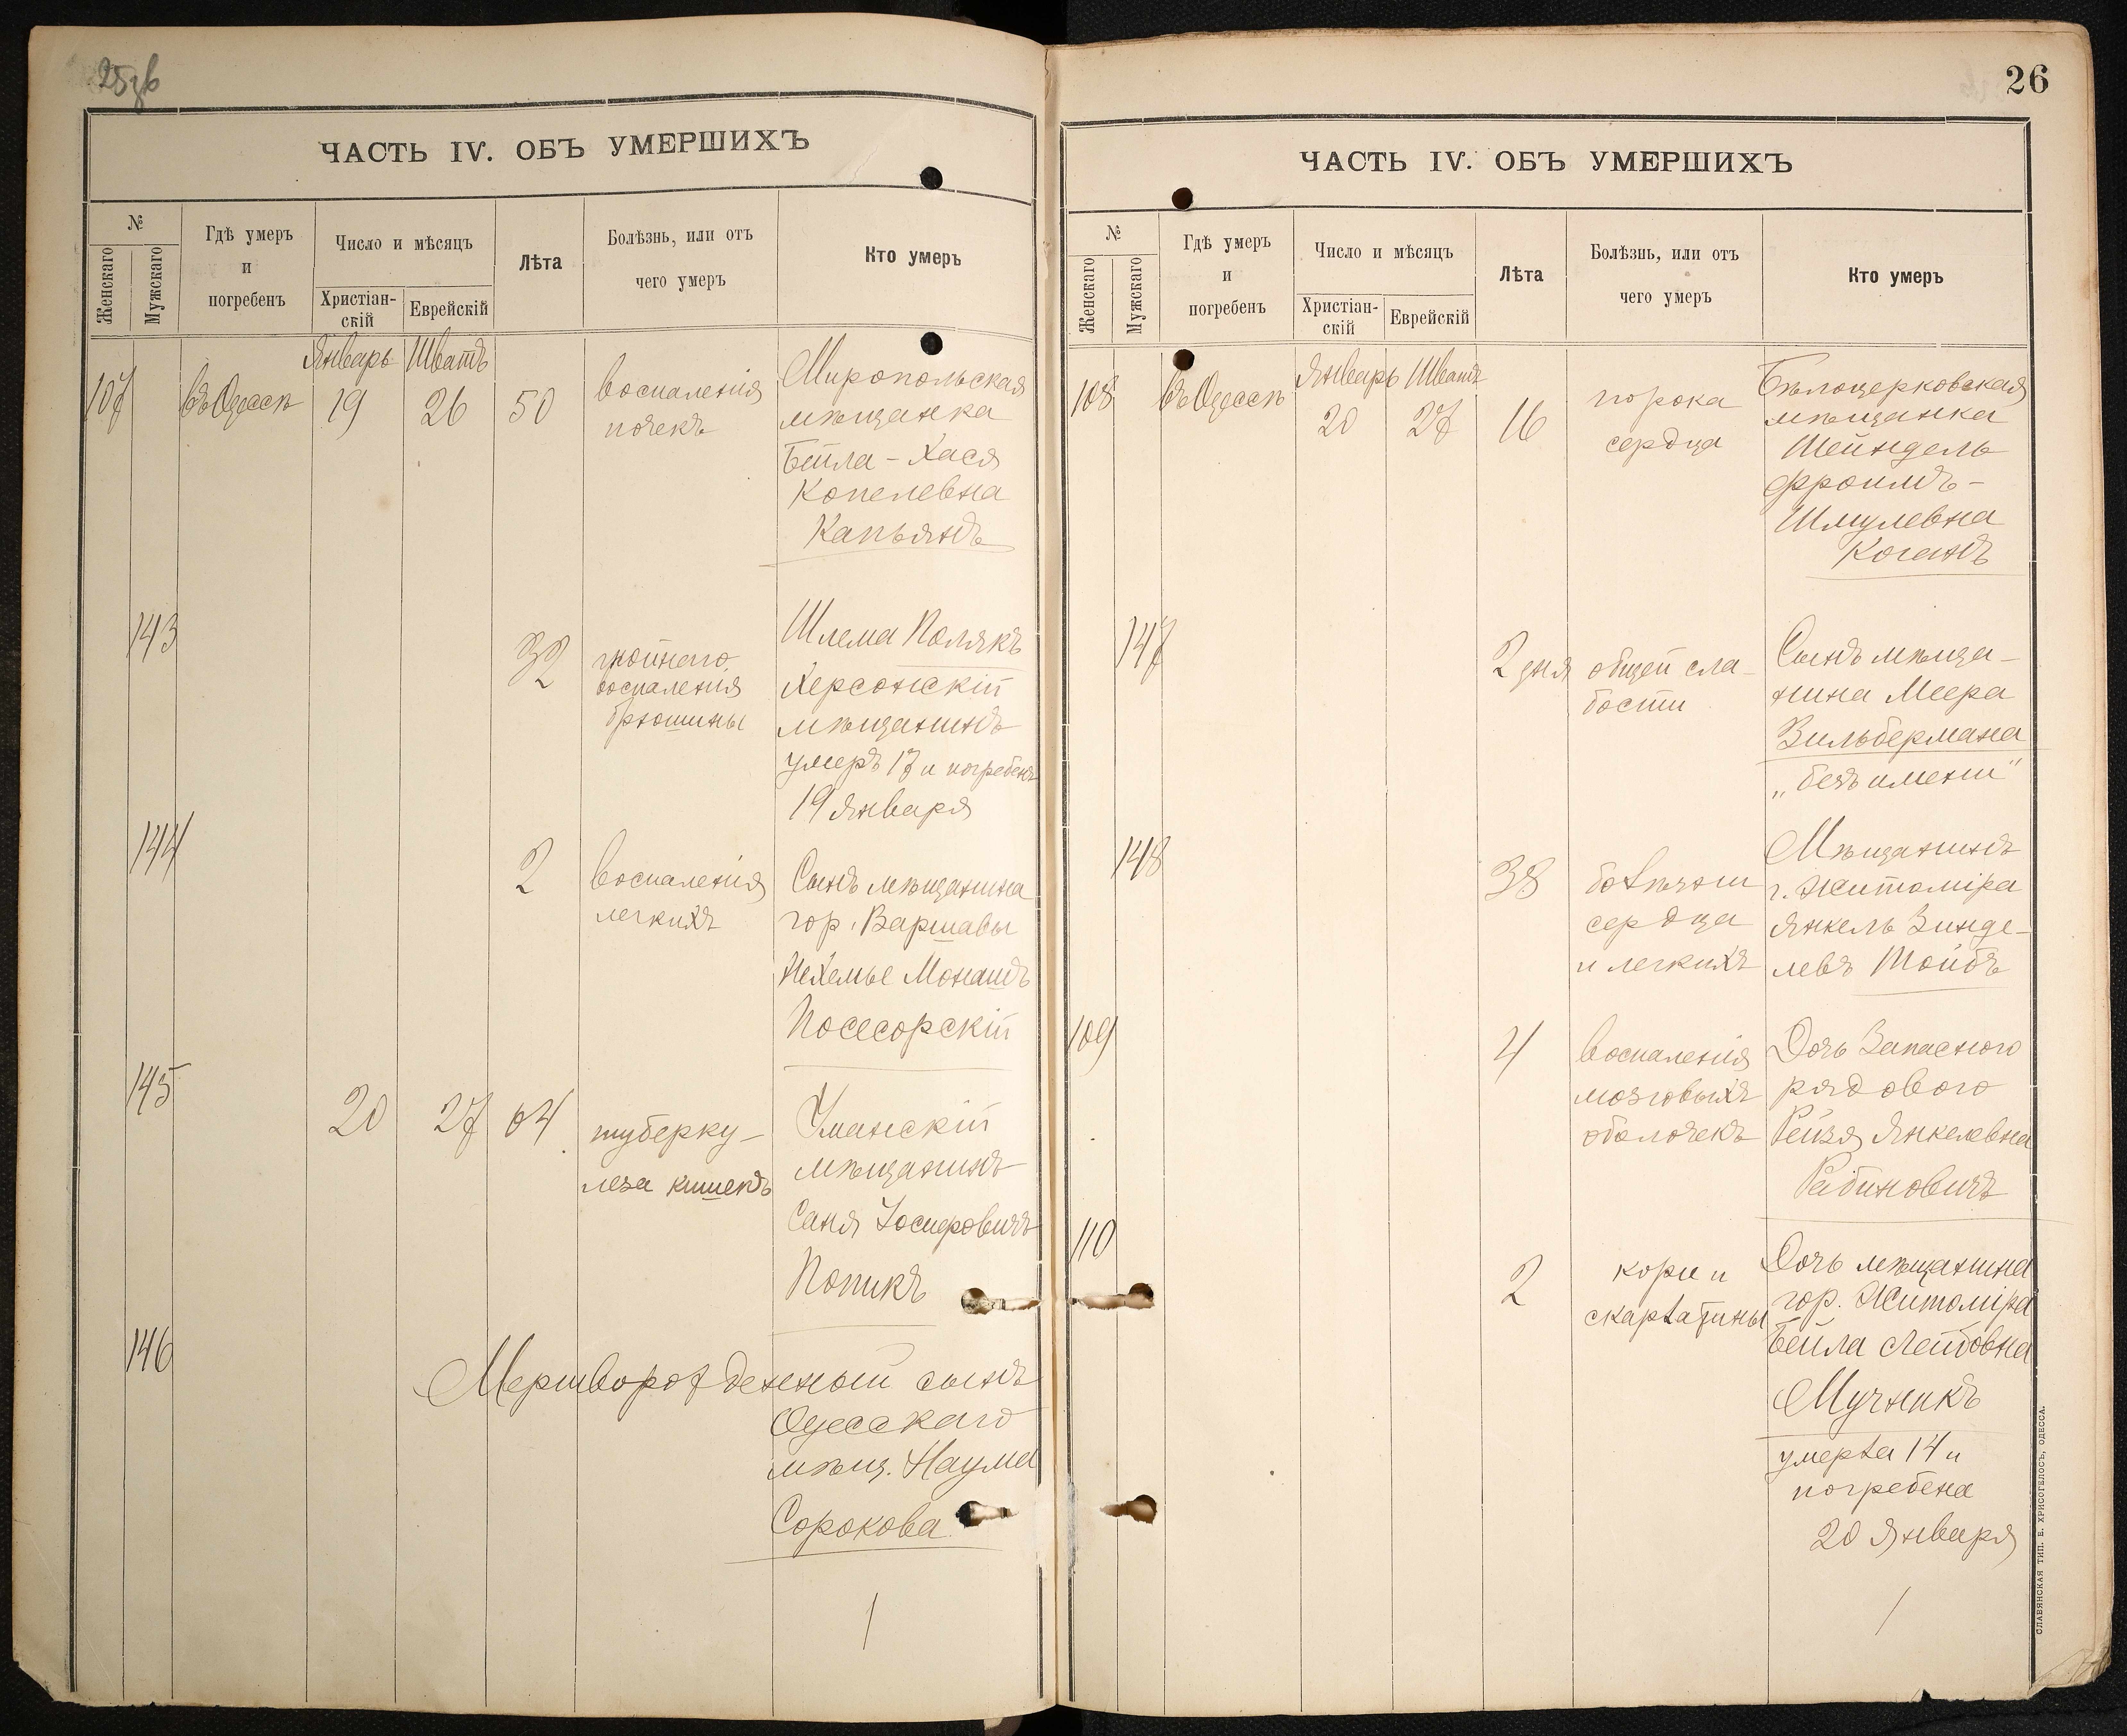 25 зв
ЧАСТЬ IV. ОБЪ УМЕРШИХЪ
№
Женскаго
Мужскаго
Гдѣ умеръ
и
погребенъ
Число и мѣсяцъ
Христіан-
скій
Еврейскій
Лѣта
Болѣзнь, или отъ
чего умеръ
Кто умеръ
Январь Шватъ
107
въ Одессѣ
19
26
50
воспаленія
почекъ
Миропольская
мѣщанка
Бейла - Хася
Копелевна
Капьянъ
143
32
гнойнаго
воспаленія
брюшины
Шлема Полякъ
Херсонскій
мѣщанинъ
умеръ 17 и погребенъ
19 Января
144
2
воспаленія
легкихъ
Сынъ мѣщанина
гор. Варшавы
Нехемье Монашъ
Посесорскій
145
20
27
64
туберку-
леза кишекъ
Уманскій
мѣщанинъ
Саня Іосифовичъ
Попикъ
146
Мертворожденный сынъ
Одесскаго
мѣщ. Наума
Сорокова
26
ЧАСТЬ IV. ОБЪ УМЕРШИХЪ
№
Женскаго
Мужскаго
Гдѣ умеръ
и
погребенъ
Число и мѣсяцъ
Христіан-
скій
Еврейскій
Лѣта
Болѣзнь, или отъ
чего умеръ
Кто умеръ
Январь Шватъ
108
въ Одессѣ
20
27
16
порока
сердца
Бѣлоцерковская
мѣщанка
Шейндель
Фроимъ-
Шмулевна
Коганъ
147
2 дня
общей сла-
бости
Сынъ мѣща-
нина Меера
Зильбермана
„безъ имени"
148
38
болѣзни
сердца
и легкихъ
Мѣщанинъ
г. Житоміра
Янкель Зинде-
левъ Тойбъ
109
4
воспаленія
мозговыхъ
оболочекъ
Дочь Запаснаго
рядового
Рейзя Янкелевна
Рабиновичъ
110
2
кори и
скарлатины
Дочь мѣщанина
гор. Житоміра
Бейла Лейбовна
Мучникъ
умерла 14 и
погребена
20 Января
СЛАВЯНСКАЯ ТИП. Е. ХРИСОГЕЛОСЪ, ОДЕССА.